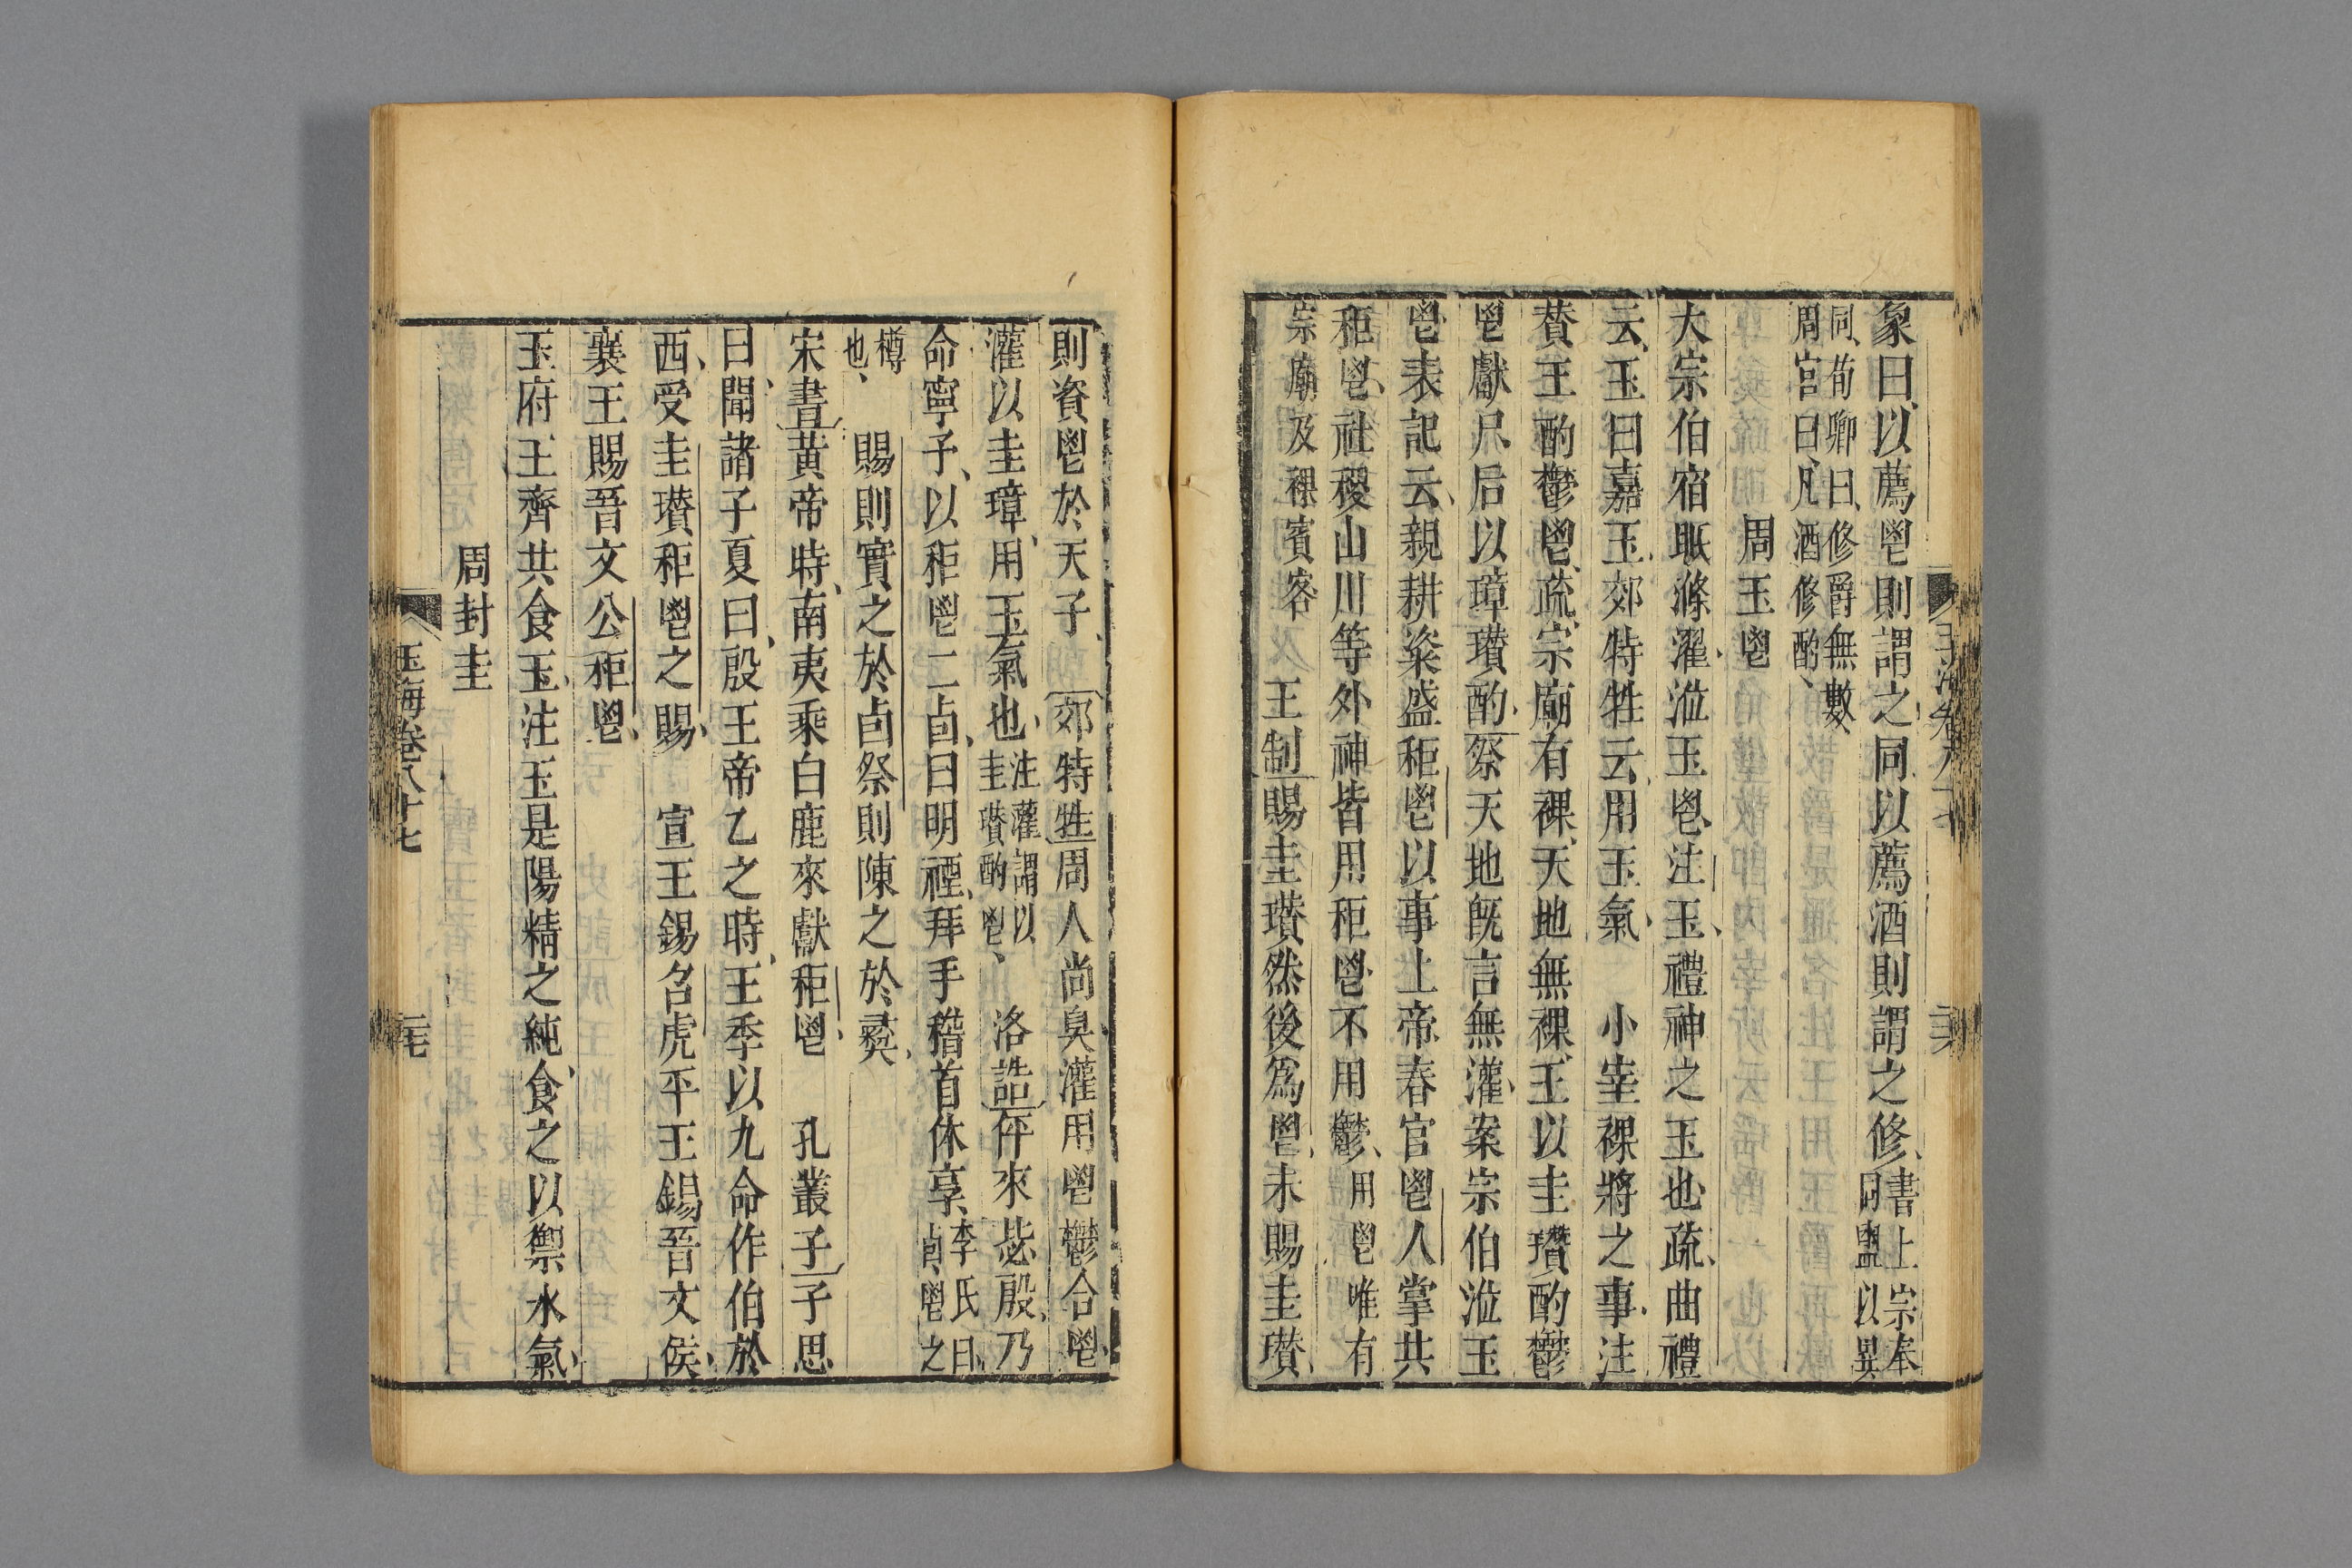 象曰以薦鬯則謂之同以薦酒則謂之修書上宗奉
同盥以異
同荀卿曰修爵無數
周官曰凡酒修酌
周玉鬯
大宗伯宿眡滌濯涖玉鬯注玉禮神之玉也疏曲禮
云玉曰嘉玉郊特牲云用玉氣　小宰祼將之事注
賛王酌鬱鬯疏宗廟有祼天地無祼王以圭瓚酌鬱
鬯獻尸后以璋瓚酌祭天地旣言無灌案宗伯涖玉
鬯表記云親耕粢盛秬鬯以事上帝春官鬯人掌共
秬鬯社稷山川等外神皆用秬鬯不用鬱用鬯唯有
宗廟及祼賓客　王制賜圭瓚然後爲鬯未賜圭瓚
玉海卷八十七
二六
則資鬯於天子　郊特牲周人尚臭灌用鬯鬱合鬯
灌以圭璋用玉氣也注灌謂以
圭瓚酌鬯　洛誥伻來毖殷乃
命寧予以秬鬯二卣曰明禋拜手稽首休享李氏曰
卣鬯之
樽
也　賜則實之於卣祭則陳之於彛
宋書黃帝時南夷乘白鹿來獻秬鬯　孔叢子子思
曰聞諸子夏曰殷王帝乙之時王季以九命作伯於
西受圭瓚秬鬯之賜　宣王錫召虎平王錫晉文侯
襄王賜晉文公秬鬯
玉府王齊共食玉注玉是陽精之純食之以禦水氣
周封圭
玉海卷八十七
二七